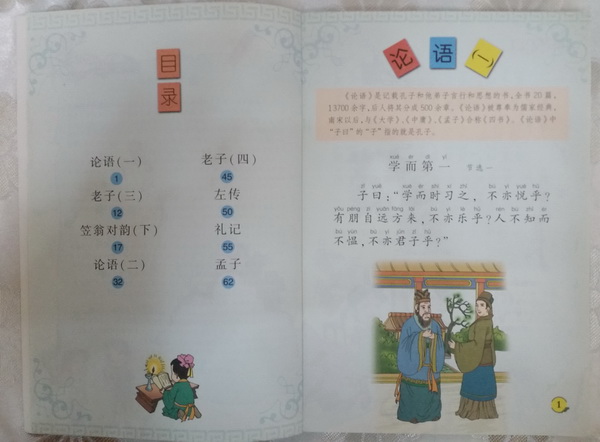 目
录
论语(一)
1
老子(三)
12
笠翁对韵(下)
17
论语(二)
32
老子(四)
45
左传
50
礼记
55
孟子
62
论语(一)
《论语》是记载孔子和他弟子言行和思想的书,全书20篇,
13700余字,后人将其分成500余章。《论语》被尊奉为儒家经典,
南宋以后,与《大学》、《中庸》、《孟子》合称《四书》。《论语》中
“子曰”的“子”指的就是孔子。
xué ér dì yī
学而第一 节选一
zǐ yuē xué ér shí xí zhī bú yì yuè hū
子曰:“学而时习之,不亦悦乎?
yǒu péng zì yuǎn fāng lái bú yì lè hū rén bù zhī ér
有朋自远方来,不亦乐乎?人不知而
bú yùn bú yì jūn zǐ hū
不愠,不亦君子乎?”
1